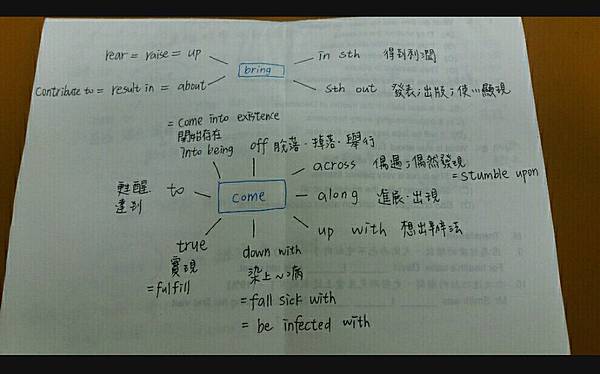 rear = raise = up
bring
in sth 得到利潤
contribute to = result in = about
sth out 發表;出版;使…顯現
= come into existence
開始存在
into being
off 脫落.掉落.舉行
across 偶遇;偶然發現
= stumble upon
甦醒
達到
to
come
along 進展.出現
up with 想出辦法
true
實現
= fulfill
down with
染上~病
= fall sick with
= be infected with